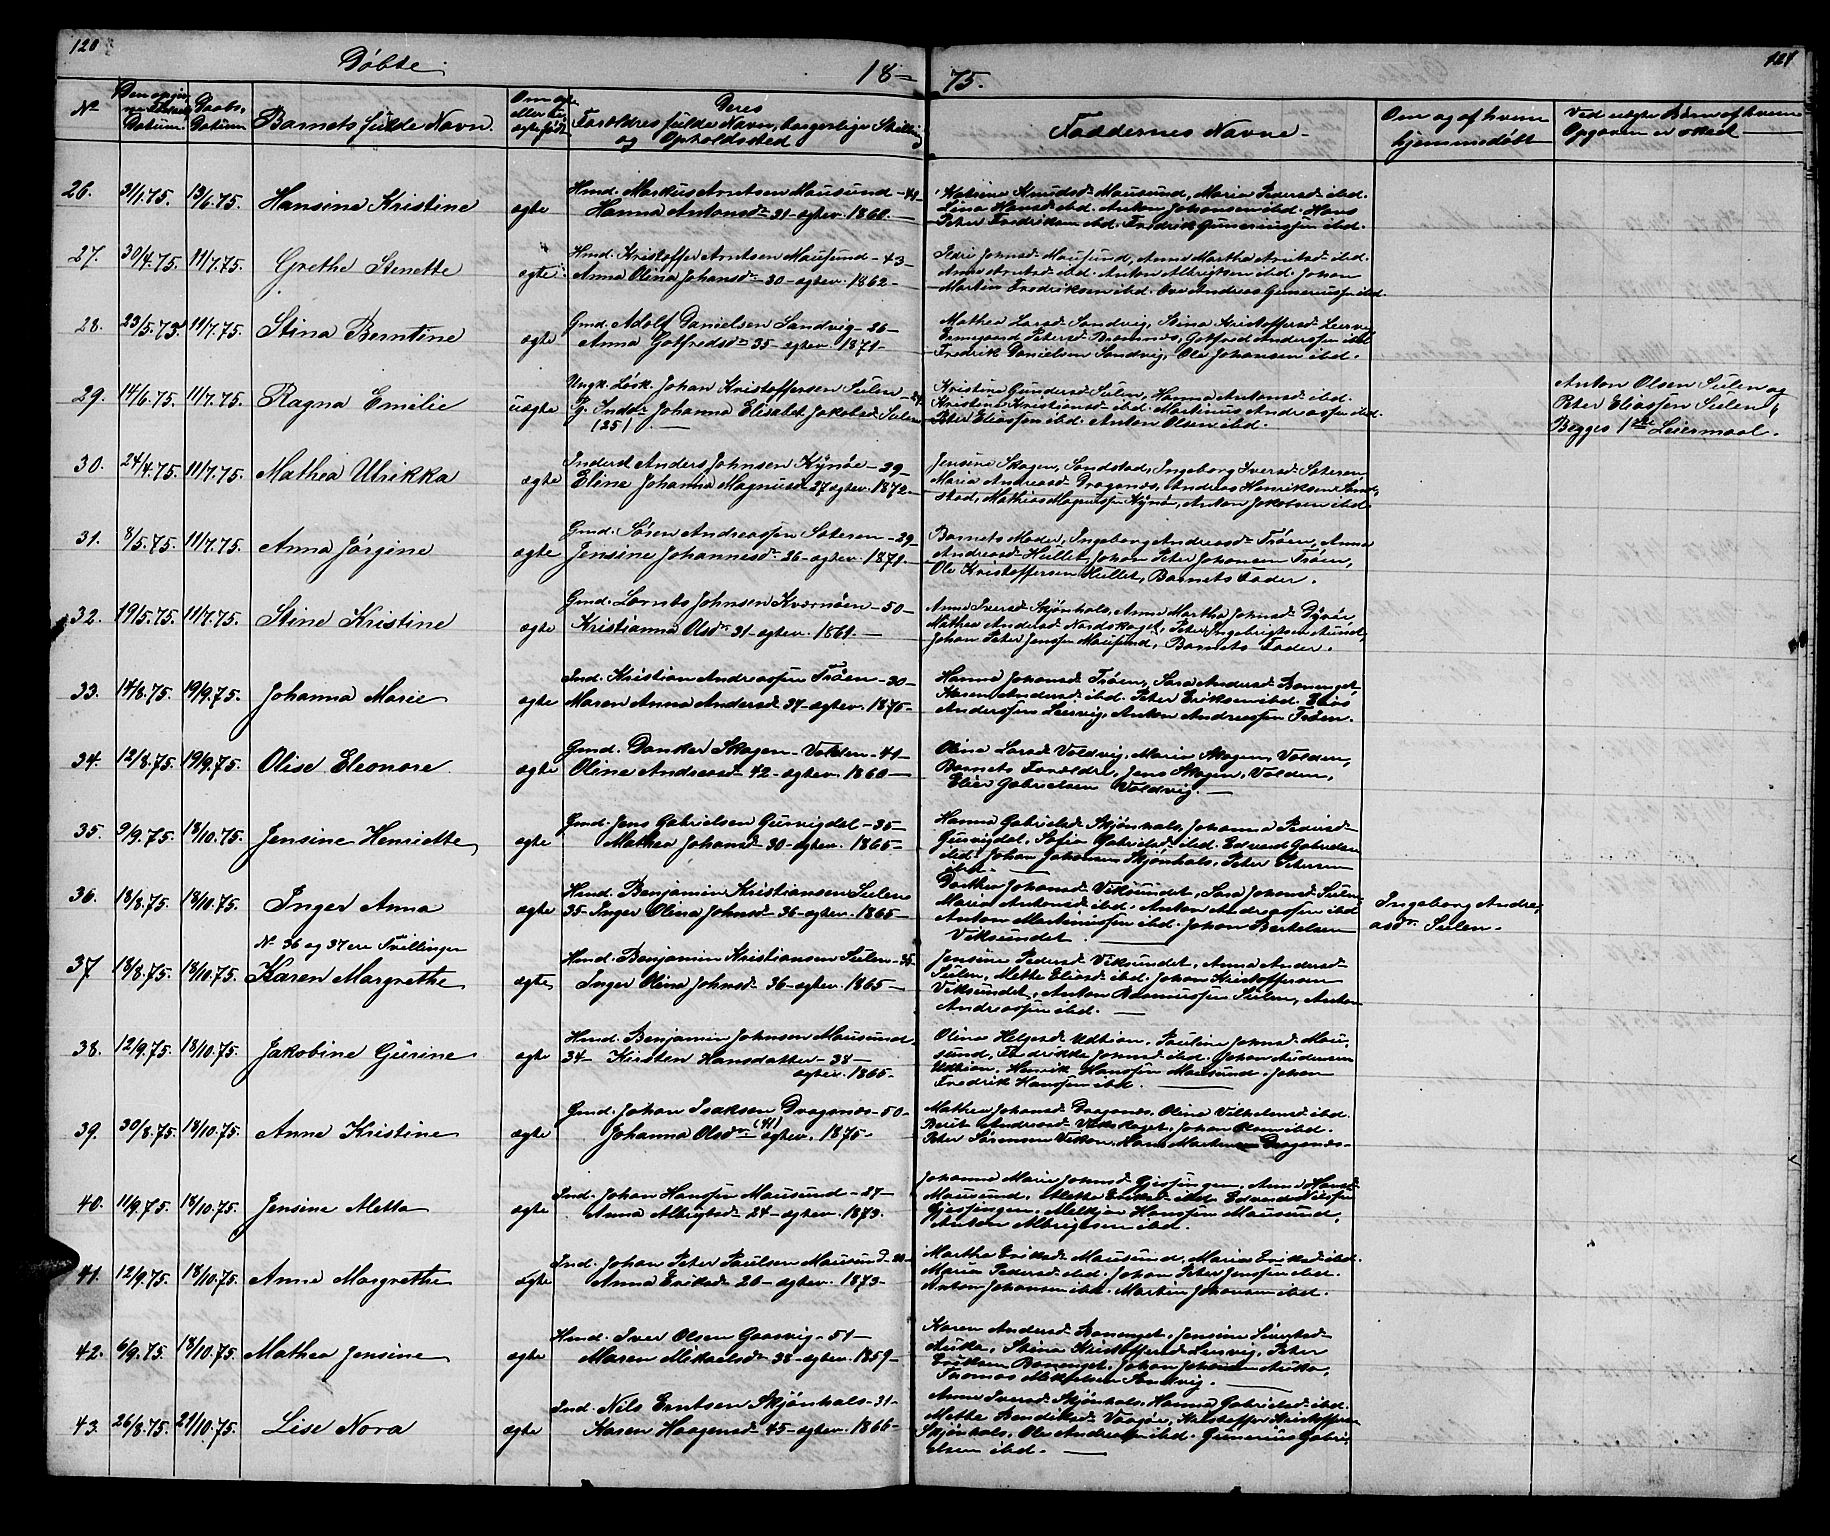 120
Döbte
18-75.
121
No
Datum
Daabs-
Datum
Barnets fulde Navn.
Om ægte
eller u-
ægte født
Deres
Forældres fulde Navn, borgerlige Stilling
og Opholdssted
Faddernes Navne
Om og af hvem
hjemmedöbt
Ved uægte Börn af hvem
Opgaven er skeet
26. 31/1.75. 13/6.75. Hansine Kristine ægte
Hmd. Markus Arntsen Mausund - 44-
Hanna Antonsd. 31 - ægtev. 1860.
Katrine Knudsd. Mausund, Maria Pedersd. ibd.
Lina Hansd. ibd. Anton Johansen ibd. Hans
Peter Fredriksen ibd. Fredrik Guneriussen ibd.
27. 30/4.75. 11/7.75. Grethe Stenette ægte
Hmd. Kristoffer Arntsen Mausund - 43-
Anna Olina Johansd. 30 - ægtev. 1862-
Johnsd. Mausund, Anne Martha Arntsd. ibd.
Anne Arntsd. ibd. Anton Albrigtsen ibd. Johan
Martin Fredriksen ibd. Ove Andreas Gunerius ibd.
28. 23/5.75 11/7.75. Stina Berntine ægte
Gmd. Adolf Danielsen Sandvig - 26-
Anna Gotfredsd. 35 - ægtev. 1871-
Mathea Larsd. Sandvig, Stina Kristoffersd. Leervig
Petersd. Gotfred Anderssen ibd.
Fredrik Danielsen Sandvig, Ole Johansen ibd.
29. 14/6.75. 11/7.75. Ragna Emilie uægte
Ungk. Lösk. Johan Kristoffersen Sulen
Pg. Indd. Johanna Elisabet Jakobsd. Sulen
(25)
Kristine Gundersd. Sulen, Hanna Antonsd. ibd.
Kristine Kristiansd. ibd. Martinus Andreassen ibd.
Peter Eliassen ibd. Anton Olsen ibd.
Anton Olsen Sulen og
Peter Eliassen Sulen,
Begges 1ste Leiermaal.
30. 24/4.75. 11/7.75. Mathea Ulrikka ægte
Inderst Anders Johnsen Kynöe - 39-
Eline Johanna Magnusd. 27 ægtev. 1872-
Jensine Skagen, Sandstad, Ingeborg Iversd. Sæteren
Maria Andreasd. Dragsnæs, Andreas Henriksen Sand-
stad, Mathias Magnussen Kynöe, Anton Jakobsen ibd.
31. 8/5.75. 11/7.75. Anna Jörgine ægte
Gmd. Sören Andreassen Sæteren - 29-
Jensine Johannesd. 36 - ægtev. 1871.
Barnets Moder, Ingeborg Andreasd. Tröen, Anna
Andreasd. Hullet, Johan Peter Johansen Tröen,
Ole Kristoffersen Hullet, Barnets Fader.
32. 19/5.75. 11/7.75. Stine Kristine ægte
Gmd. Lornts Johnsen Kvernöen - 50-
Kristianna Olsd. 31 - ægtev. 1861.
Anne Iversd. Skjönhals, Anne Martha Johnsd. Dyröe,
Mathea Andersd. Nordskaget, Peter Ingebrigtsen Aund,
Johan Peter Jenssen Mausund, Barnets Fader.
33. 14/8.75. 19/9.75. Johanna Marie ægte
Ind. Kristian Andreassen Tröen - 30-
Maren Anna Andersd. 34 - ægtev. 1875-
Hanna Johansd. Tröen, Sara Andersd. Bonenget,
Karen Andersd. ibd. Peter Eriksen ibd.
Anderssen Leervig, Anton Andreassen Tröen.
34. 12/8.75. 19/9.75. Olise Eleonore ægte
Gmd. Danker Skagen - Valden - 41-
Oline Andreasd. 42 - ægtev. 1860-
Olina Larsd. Valdvig, Maria Skagen, Valden,
Barnets Forældre, Jens Skagen, Valden,
Elier Gabrielsen Valdvig.
35. 9/9.75. 18/10.75. Jensine Henriette ægte
Gmd. Jens Gabrielsen Gurvigdal - 35-
Mathea Johansd. 30 - ægtev. 1865-
Hanna Gabrielsd. Skjönhals, Johanna Pedersd.
Gurvigdal, Sofie Gabrielsd. ibd. Edvard Gabrielsen
ibd. Johan Johansen Skjönhals, Peter Petersen
ibd.
36. 18/8.75 18/10.75. Inger Anna ægte
Hmd. Benjamin Kristiansen Sulen
35 - Inger Olina Johnsd. 36 - ægtev. 1865-
Dorthea Johansd. Viksundet, Sara Johansd. Sulen,
Maria Antonsd. ibd. Anton Andreassen ibd.
Anton Martinussen ibd. Johan Bertelsen
Viksundet
Ingeborg Andre-
asdr. Sulen.
No 36 og 37 ere Tvillinger
37 18/8.75. 18/10.75. Karen Margrethe ægte
Hmd. Benjamin Kristiansen Sulen - 35-
Inger Olina Johnsd. 36 - ægtev. 1865-
Jensine Pedersd. Viksundet, Anna Andersd.
Sulen, Methe Eliasd. ibd. Johan Kristoffersen
Viksundet, Anton Rasmussen Sulen, Anton
Andreassen ibd.
38. 12/9.75. 18/10.75. Jakobine Gurine ægte
Hmd. Benjamin Johnsen Mausund,
34- Kirsten Hansdatter - 38-
ægtev. 1865-
Olina Helgesd. Udtian, Pauline Johnsd. Mau-
sund, Fredrikke Johnsd. ibd. Johan Andersen
Udtian, Henrik Hanssen Mausund. Johan
Fredrik Hanssen ibd.
39. 30/8.75. 18/10.75. Anne Kristine ægte
Gmd. Johan Isaksen Dragsnæs - 50-
Johanna Olsdr. (41) ægtev. 1875-
Mathea Johansd. Dragsnæs, Olina Vilhelmsd. ibd.
Berit Andreasd. Johan Olsen ibd.
Peter Sörensen Hans Dragsnæs-
40. 11/9.75. 18/10.75. Jensine Aletta ægte
Ind. Johan Hanssen Mausund - 27-
Anna Albrigtsd. 24 - ægtev. 1873.
Johanna Marie Johnsd. Gjessingen, Anne Hansd.
Mausund, Alette Eriksd. ibd. Edvard
Gjessingen, Melkior Hanssen Mausund,
Anton Albrigtsen ibd.
41. 12/9.75. 18/10.75. Anne Margrethe ægte
Ind. Johan Peter Paulsen Mausund
Anna Eriksd. 26 - ægtev. 1873-
Martha Eriksd. Mausund, Maria Eriksd. ibd.
Maria Pedersd. ibd. Johan Peter Jenssen ibd.
Anton Johansen ibd. Martin Johansen ibd.
42. 6/9.75. 18/10.75. Mathea Jensine ægte
Hmd. Iver Olsen Gaasvig - 51-
Maren Mikaelsd. 38 - ægtev. 1859-
Karen Andersd. Bonenget, Jensine Sivertsd.
Stina Kristoffersd. Leervig, Peter
Eriksen Bonenget, Johan Johansen
Thomas Mikkelsen Sandvig.
43. 26/8.75. 21/10.75. Lise Nora ægte
Ind. Nils Erntsen Skjönhals - 31-
Karen Haagensd. 45 - ægtev. 1866-
Anne Iversd. Skjönhals, Hanna Gabrielsd. ibd.
Methe Bendiksd. Vaagöe, Kristoffer Kristoffersen
Skjönhals, Ole Andreassen ibd. Gunerius Gabri-
elsen ibd.